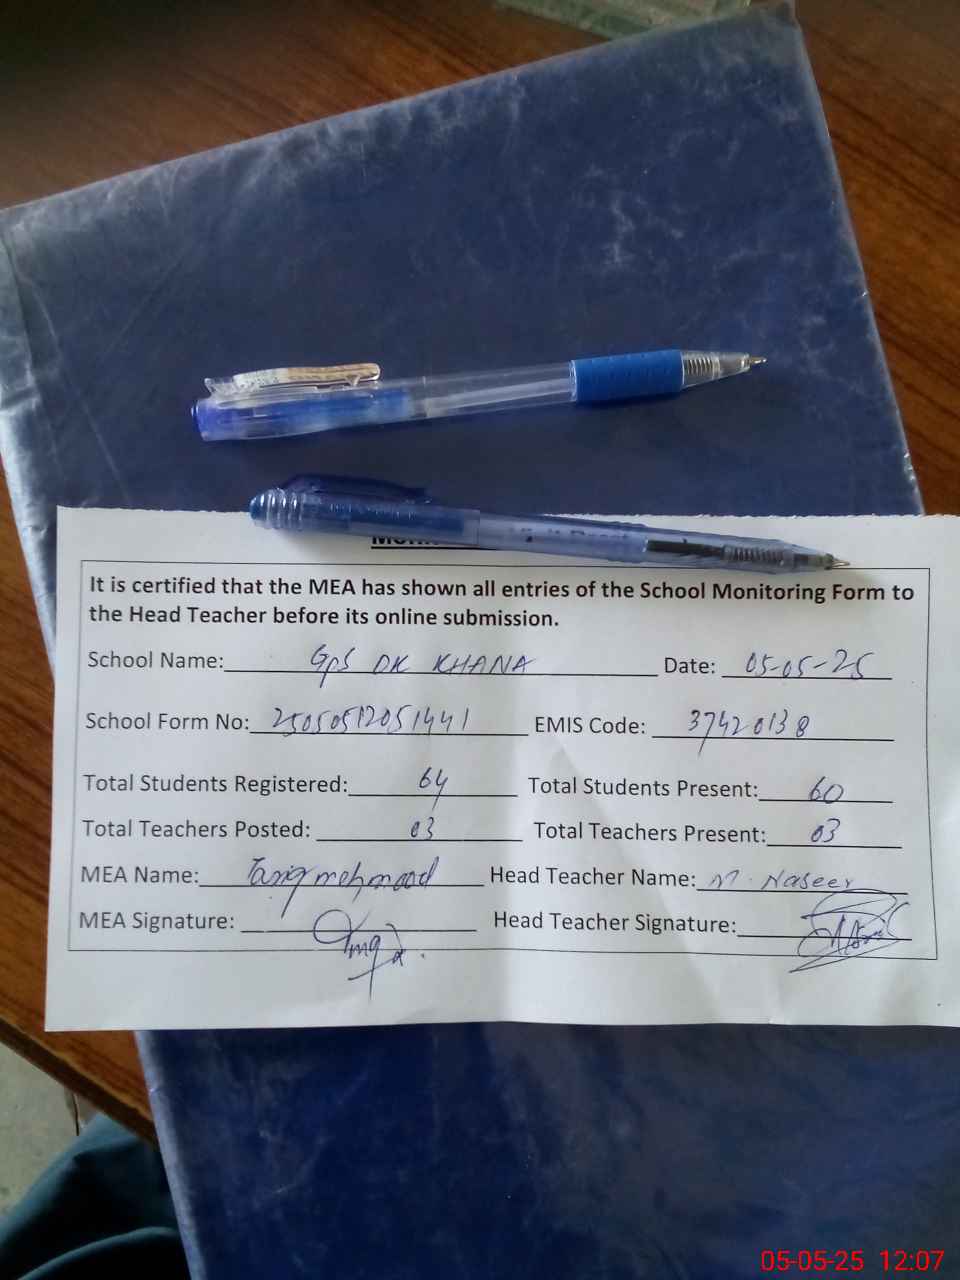 It is certified that the MEA has shown all entries of the School Monitoring Form to
the Head Teacher before its online submission.
School Name: GPS DK KHANA Date: 05-05-25
School Form No: 25050512051441 EMIS Code: 37420138
Total Students Registered: 64 Total Students Present: 60
Total Teachers Posted: 03 Total Teachers Present: 03
MEA Name: Tariq mehmood Head Teacher Name: M. Naseer
MEA Signature: Head Teacher Signature:
05-05-25 12:07